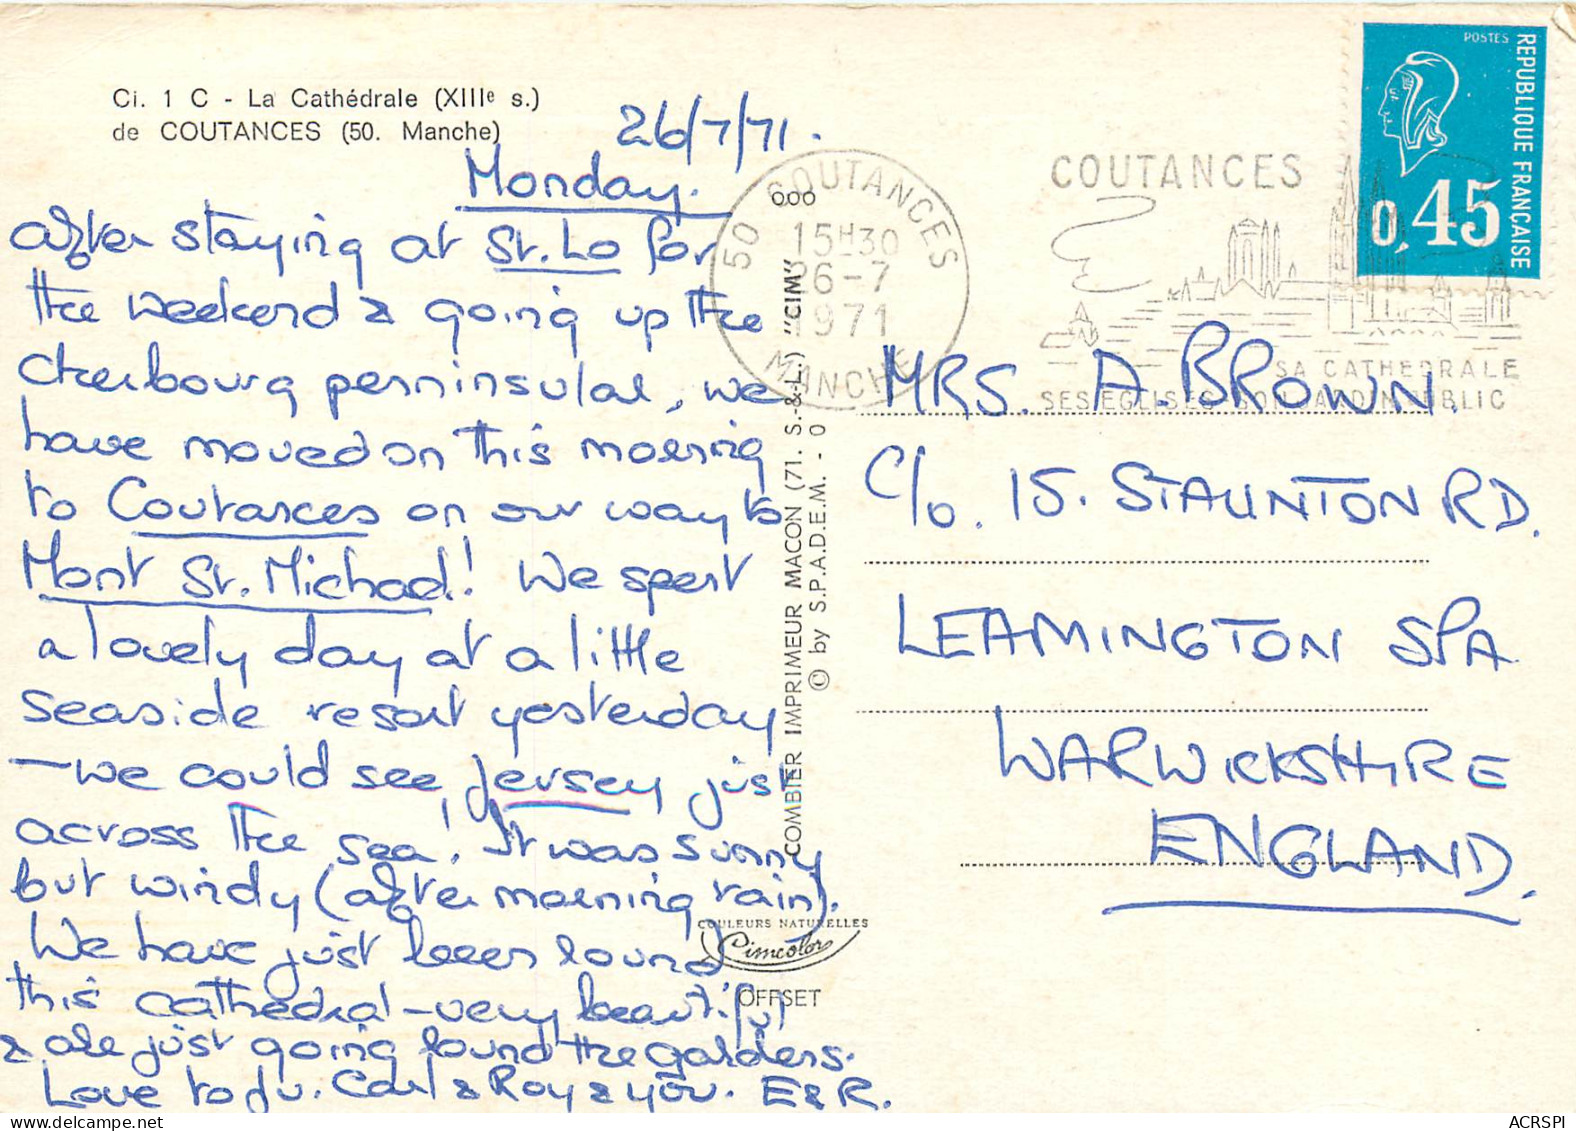 Ci. 1 C - La Cathédrale (XIIIe s.)
de COUTANCES (50. Manche)
26/7/71.
Monday.
after staying at St. Lo for
the weekend & going up the
cherbourg penninsular, we
have moved on this morning
to Coutances on our way to
Mont St. Michael! We spent
a lovely day at a little
seaside resort yesterday
- we could see, Jersey just
across the sea! It was sunny
but windy (after morning rain).
We have just been round
this cathedral - very beautiful
& are just going round the gardens.
Love to Ju. Carl & Roy & you. E & R.
COMBIER IMPRIMEUR MACON (71. S.-&-L.) "CIM"
© by S.P.A.D.E.M. - 0
COULEURS NATURELLES
Cimcolor
OFFSET
50 COUTANCES
15H30
26-7
1971
MANCHE
COUTANCES
SA CATHEDRALE
SES EGLISES SON JARDIN PUBLIC
POSTES
REPUBLIQUE FRANÇAISE
0,45
MRS. A. BROWN.
C/o. 15. STAUNTON RD.
LEAMINGTON SPA
WARWICKSHIRE
ENGLAND.
delcampe.net
ACRSPI